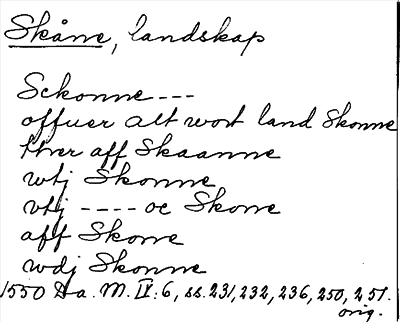 Skåne, landskap
Sckonne ---
offuer alt wort land Skonne
hrer aff Skaanne
wtj Skonne
vtj ---- oc Skone
aff Skone
wdj Skonne
1550 Da. M. IV: 6, ss. 231, 232, 236, 250, 251.
orig.